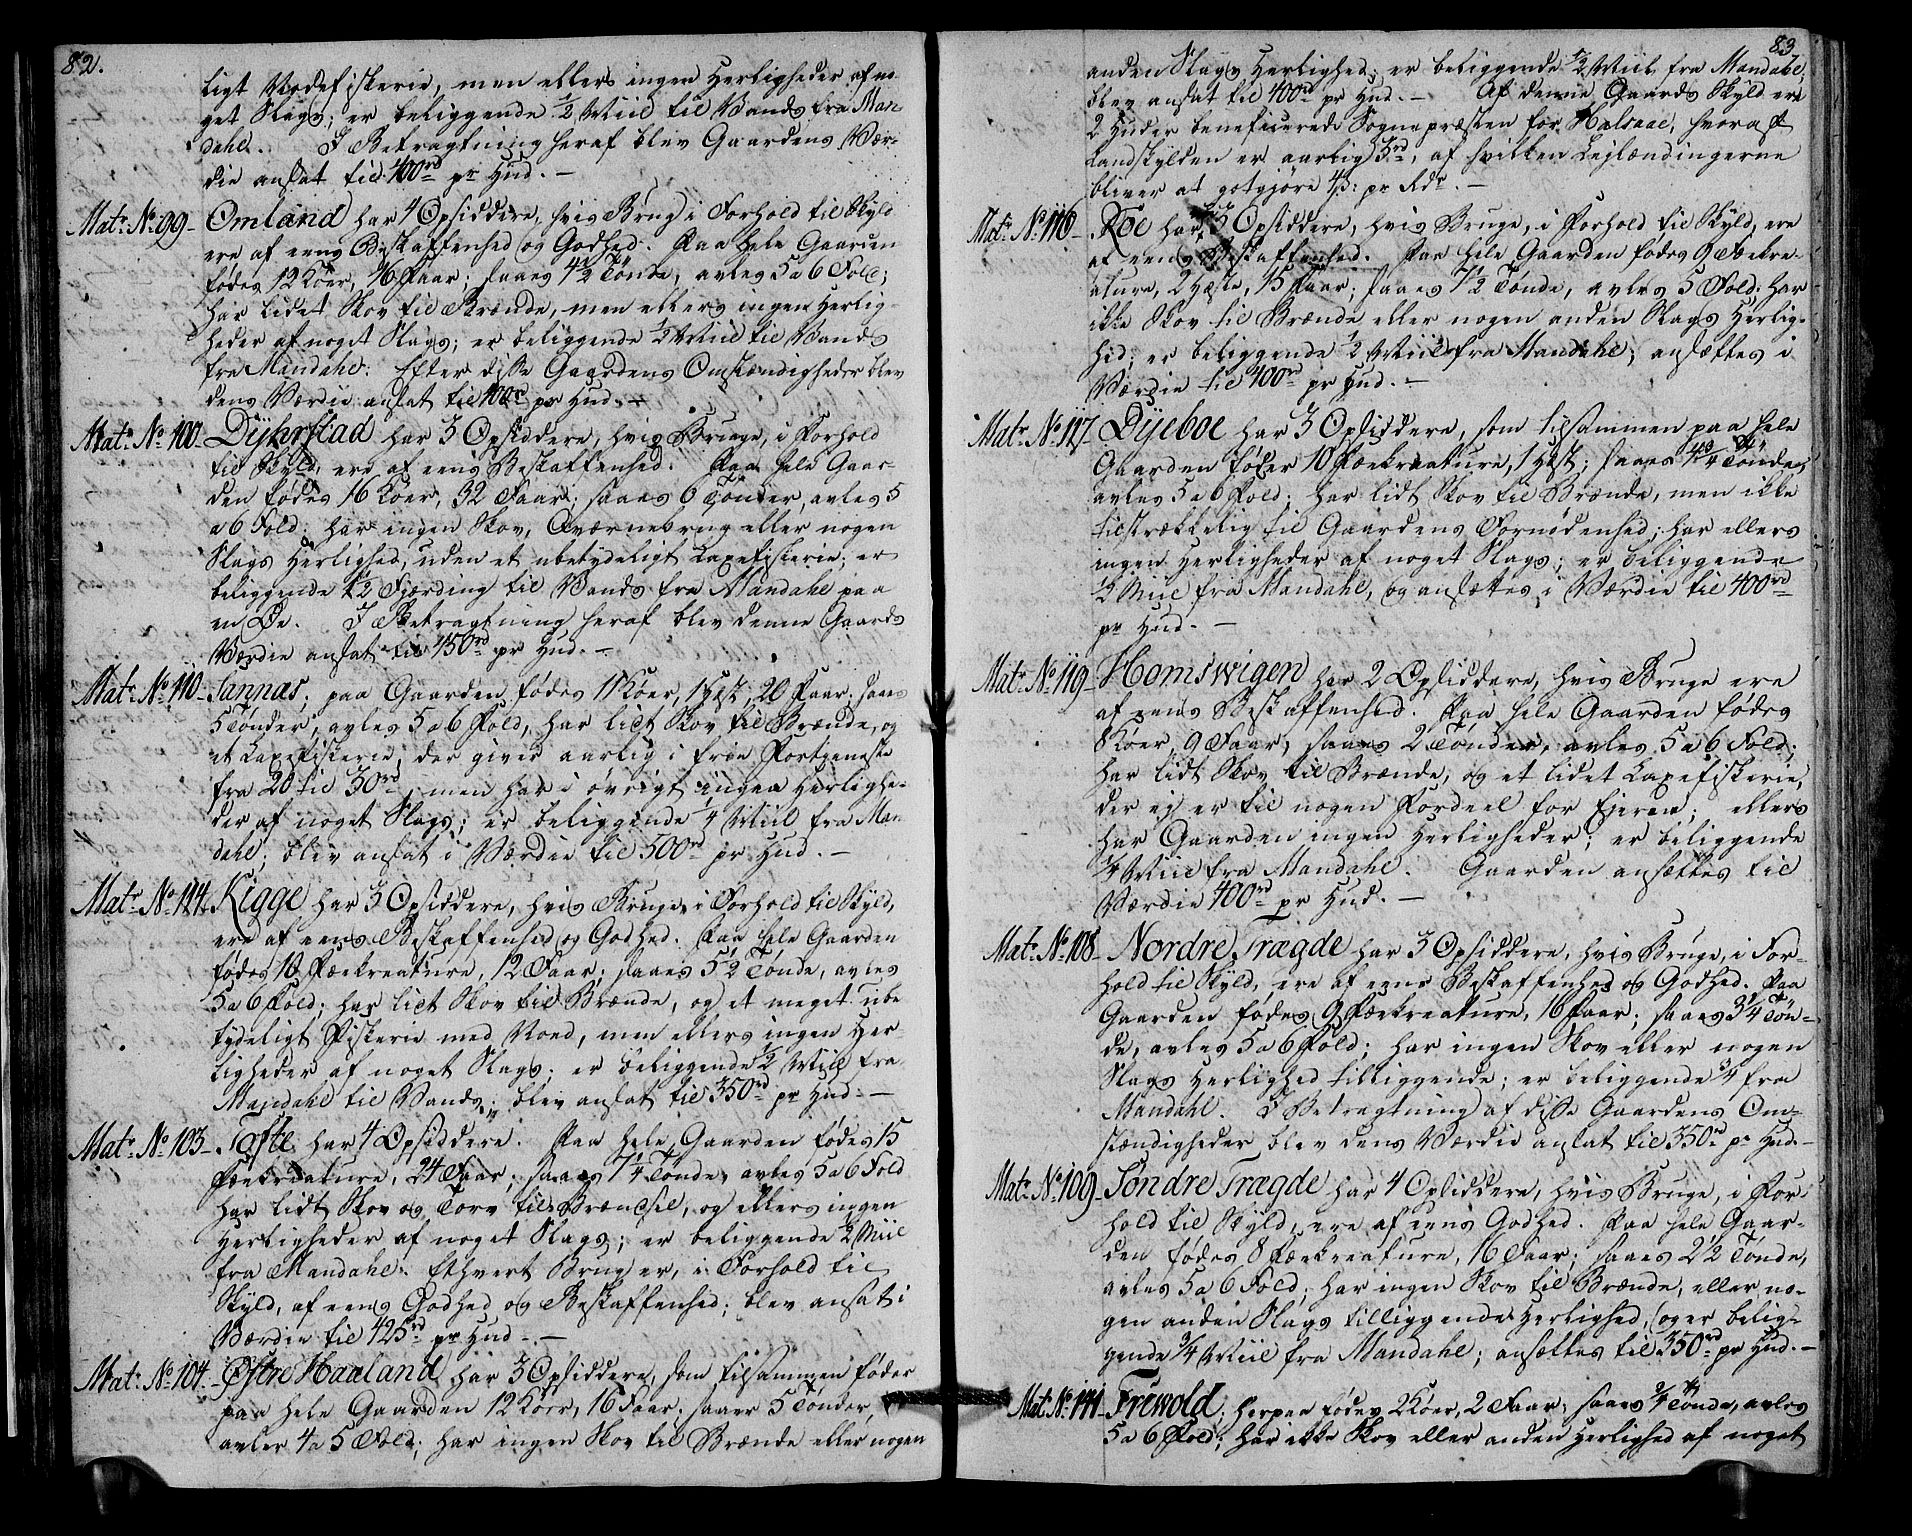 82.
ligt Nodefiskerie, men ellers ingen Herligheder af no-
get Slags; er beliggende 1/2 Miil til Vands fra Man-
dahl. I Betragtning heraf blev Gaardens Vær-
die ansat til 400rd pr Hud. —
Mat: No: 99- Omland har 4 Opsiddere, hvis Brug i Forhold til Skyld
ere af eens Beskaffenhed og Godhed. Paa hele Gaarden
fødes 12 Köer, 16 Faar; saaes 4 1/2 Tønde, avles 5 a 6 Fold;
har lidet Skov til Brænde, men ellers ingen Herlig-
heder af noget Slags; er beliggende 1/2 Miil til Vands
fra Mandahl. Efter disse Gaardens Omstændigheder blev
dens Værdie ansat til 400rd pr Hud. —
Mat: No: 100- Dyhrstad har 3 Opsiddere, hvis Bruge, i Forhold
til Skyld, ere af eens Beskaffenhed. Paa hele Gaar-
den fødes 16 Köer, 32 Faar; saaes 6 Tønder, avles 5
a 6 Fold; har ingen Skov, Qværnebrug eller nogen
Slags Herlighed, uden et ubetydeligt Laxefiskerie; er
beliggende 1/2 Fjerding til Vands fra Mandahl paa
en Øe. I Betragtning heraf blev denne Gaards
Værdie ansat til 450rd pr Hud. —
Mat: No: 110- Sannas; paa Gaarden fødes 11 Köer, 1 Hest, 20 Faar; saaes
5 Tønder, avles 5 a 6 Fold, har lidt Skov til Brænde, og
et Laxefiskerie, der giver aarlig i frie Fortjeneste
fra 20 til 30rd, men har i øvrigt ingen Herlighe-
der af noget Slags; er beliggende 1/4 Miil fra Man-
dahl; blev ansat i Værdie til 500rd pr Hud. —
Mat: No: 114. Kigge har 3 Opsiddere, hvis Bruge, i Forhold til Skyld,
ere af eens Beskaffenhed og Godhed. Paa hele Gaarden
fødes 10 Fækreature, 12 Faar; saaes 5 1/2 Tønde, avles
5 a 6 Fold; har lidt Skov til Brænde, og et meget ube
tydeligt Fiskerie med Noed, men ellers ingen Her-
ligheder af noget Slags; er beliggende 1/2 Miil fra
Mandahl til Vands; blev ansat til 350rd pr Hud. —
Mat: No: 103- Tofte har 4 Opsiddere. Paa hele Gaarden fødes 15
Fækreature, 24 Faar; saaes 7 1/4 Tønde, avles 5 a 6 Fold
har lidt Skov og Torv til Brændsel, og ellers ingen
Herligheder af noget Slags; er beliggende 1/2 Miil
fra Mandahl. Ethvert Brug er, i Forhold til
Skyld, af eens Godhed og Beskaffenhed; blev ansat i
Værdie til 425rd pr Hud. —
Mat: No: 104- Østre Haaland har 3 Opsiddere, som tilsammen føder
paa hele Gaarden 12 Köer, 16 Faar; saaer 5 Tønder,
avler 4 a 5 Fold; har ingen Skov til Brænde eller nogen
83
anden Slags Herlighed; er beliggende 1/2 Miil fra Mandahl,
blev ansat til 400rd pr Hud. — Af denne Gaards Skyld ere
2 Huder beneficerede Sognepræsten for Halsaae, hvoraf
Landskylden er aarlig 3rd, af hvilken Leilændingerne
bliver at gotgjöre 4s: pr Rdr. —
Mat: No: 116- Röe har 3 Opsiddere, hvis Bruge, i Forhold til Skyld, ere
af eens Beskaffenhed. Paa hele Gaarden fødes 9 Fækre-
ature, 2 Heste, 15 Faar; saaes 7 1/2 Tønde, avles 5 Fold: har
ikke Skov til Brænde eller nogen anden Slags Herlig-
hed; er beliggende 1/2 Miil fra Mandahl; ansættes i
Værdie til 400rd pr Hud. —
Mat: No: 117- Dyeboe har 3 Opsiddere, som tilsammen paa hele
Gaarden føder 10 Fækreature, 1 Hest; saaes 4 3/4 Tønder,
avles 5 a 6 Fold; har lidt Skov til Brænde, men ikke
tilstrækkelig til Gaardens Fornødenhed; har ellers
ingen Herligheder af noget Slags; er beliggende
1/2 Miil fra Mandahl, og ansættes i Værdie til 400rd
pr Hud. —
Mat: No: 119- Homswigen har 2 Opsiddere, hvis Bruge ere
af eens Beskaffenhed. Paa hele Gaarden fødes
8 Köer, 9 Faar; saaes 2 Tønder, avles 5 a 6 Fold;
har lidt Skov til Brænde, og et lidet Laxefiskerie,
der ej er til nogen Fordeel for Ejeren; ellers
har Gaarden ingen Herligheder; er beliggende
1/4 Miil fra Mandahl. Gaarden ansættes til
Værdie 400rd pr Hud. —
Mat: No: 108- Nordre Trægde har 3 Opsiddere, hvis Bruge, i For-
hold til Skyld, ere af eens Beskaffenhed og Godhed. Paa
Gaarden fødes 9 Fækreature, 16 Faar; saaes 3 1/4 Tøn-
de, avles 5 a 6 Fold; har ingen Skov eller nogen
Slags Herlighed tilliggende; er beliggende 3/4 fra
Mandahl. I Betragtning af disse Gaardens Om-
stændigheder blev dens Værdie ansat til 350rd pr Hud. —
Mat: No: 109- Søndre Trægde har 4 Opsiddere, hvis Bruge, i For-
hold til Skyld, ere af eens Godhed. Paa hele Gaar-
den fødes 8 Fækreature, 16 Faar; saaes 2 1/2 Tønde,
avles 5 a 6 Fold; har ingen Skov til Brænde, eller no-
gen anden Slags tilliggende Herlighed, og er belig-
gende 3/4 Miil fra Mandahl; ansættes til 350rd pr Hud. —
Mat: No: 141- Frewold; herpaa fødes 2 Köer, 2 Faar; saaes 3/4 Tønde, avles
5 a 6 Fold; har ikke Skov eller anden Herlighed af noget